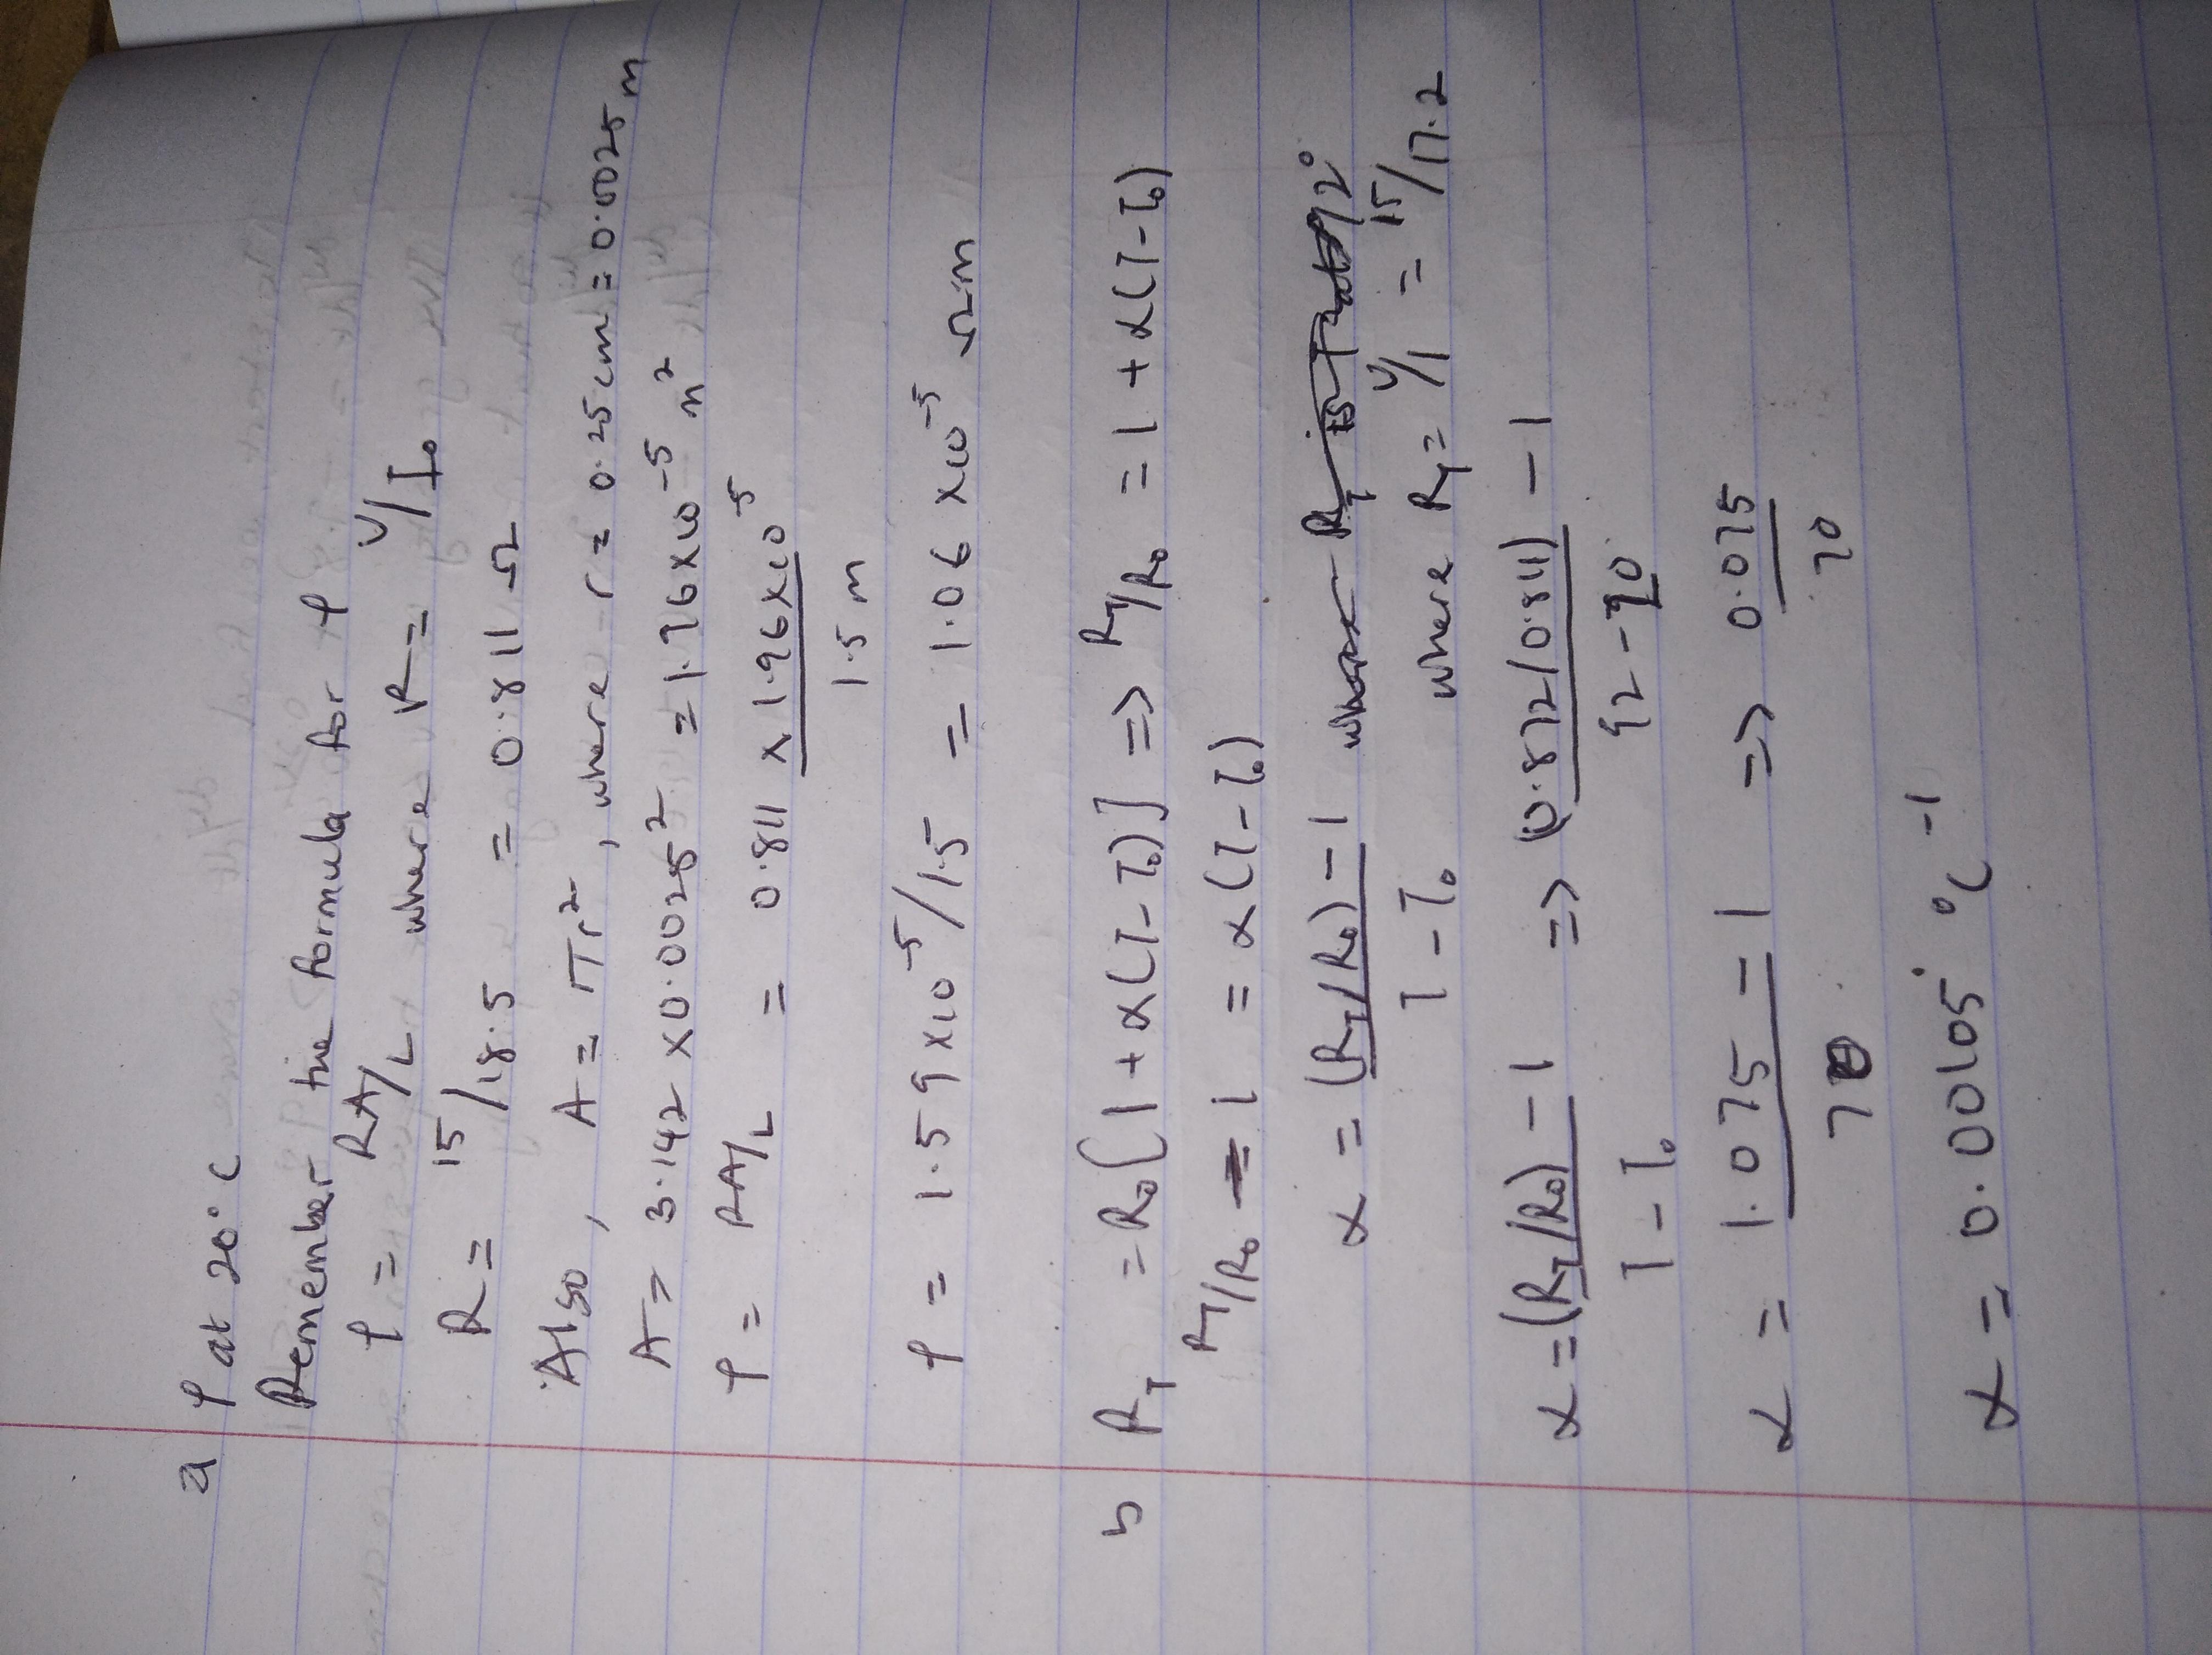 a ρ at 20°C
Remember the formula for ρ
ρ = RA/L where R = V/I₀
R = 15/18.5 = 0.811 Ω
Also, A = πr², where r = 0.25cm = 0.0025m
A = 3.142 × 0.0025² = 1.96×10⁻⁵ m²
ρ = RA/L = 0.811 × 1.96×10⁻⁵
1.5m
ρ = 1.59×10⁻⁵/1.5 = 1.06×10⁻⁵ Ωm
b R_T = R₀[1+α(T-T₀)] => R_T/R₀ = 1+α(T-T₀)
R_T/R₀ - 1 = α(T-T₀)
α = (R_T/R₀) - 1
T - T₀ where R_T = V/I = 15/17.2
α = (R_T/R₀) - 1 => (0.872/0.811) - 1
T - T₀ 92-20
α = 1.075 - 1 => 0.075
70 70
α = 0.00105 °C⁻¹